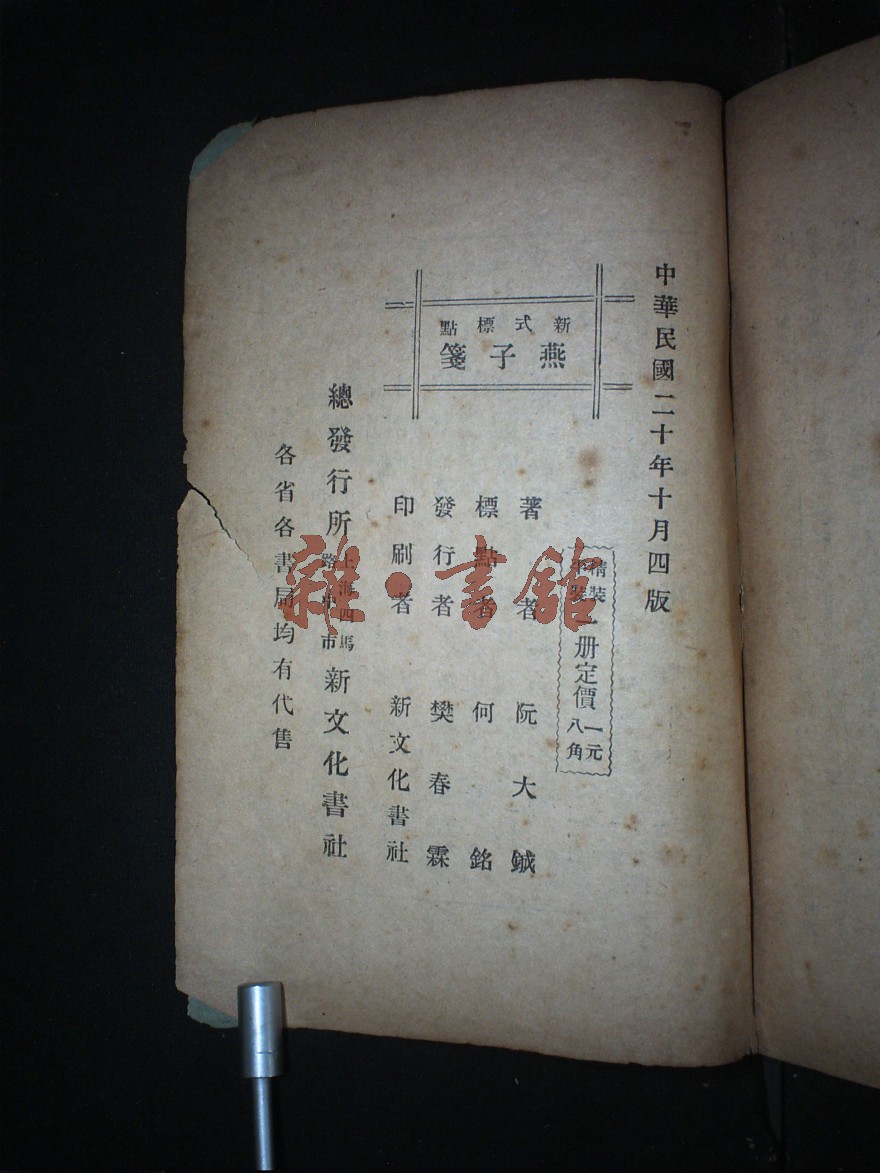 中華民國二十年十月四版
新式標點
燕子箋
精裝
平裝
一册定價
一元
八角
著者 阮大鋮
標點者 何銘
發行者 樊春霖
印刷者 新文化書社
總發行所
上海四馬
路中市
新文化書社
各省各書局均有代售
雜·書館